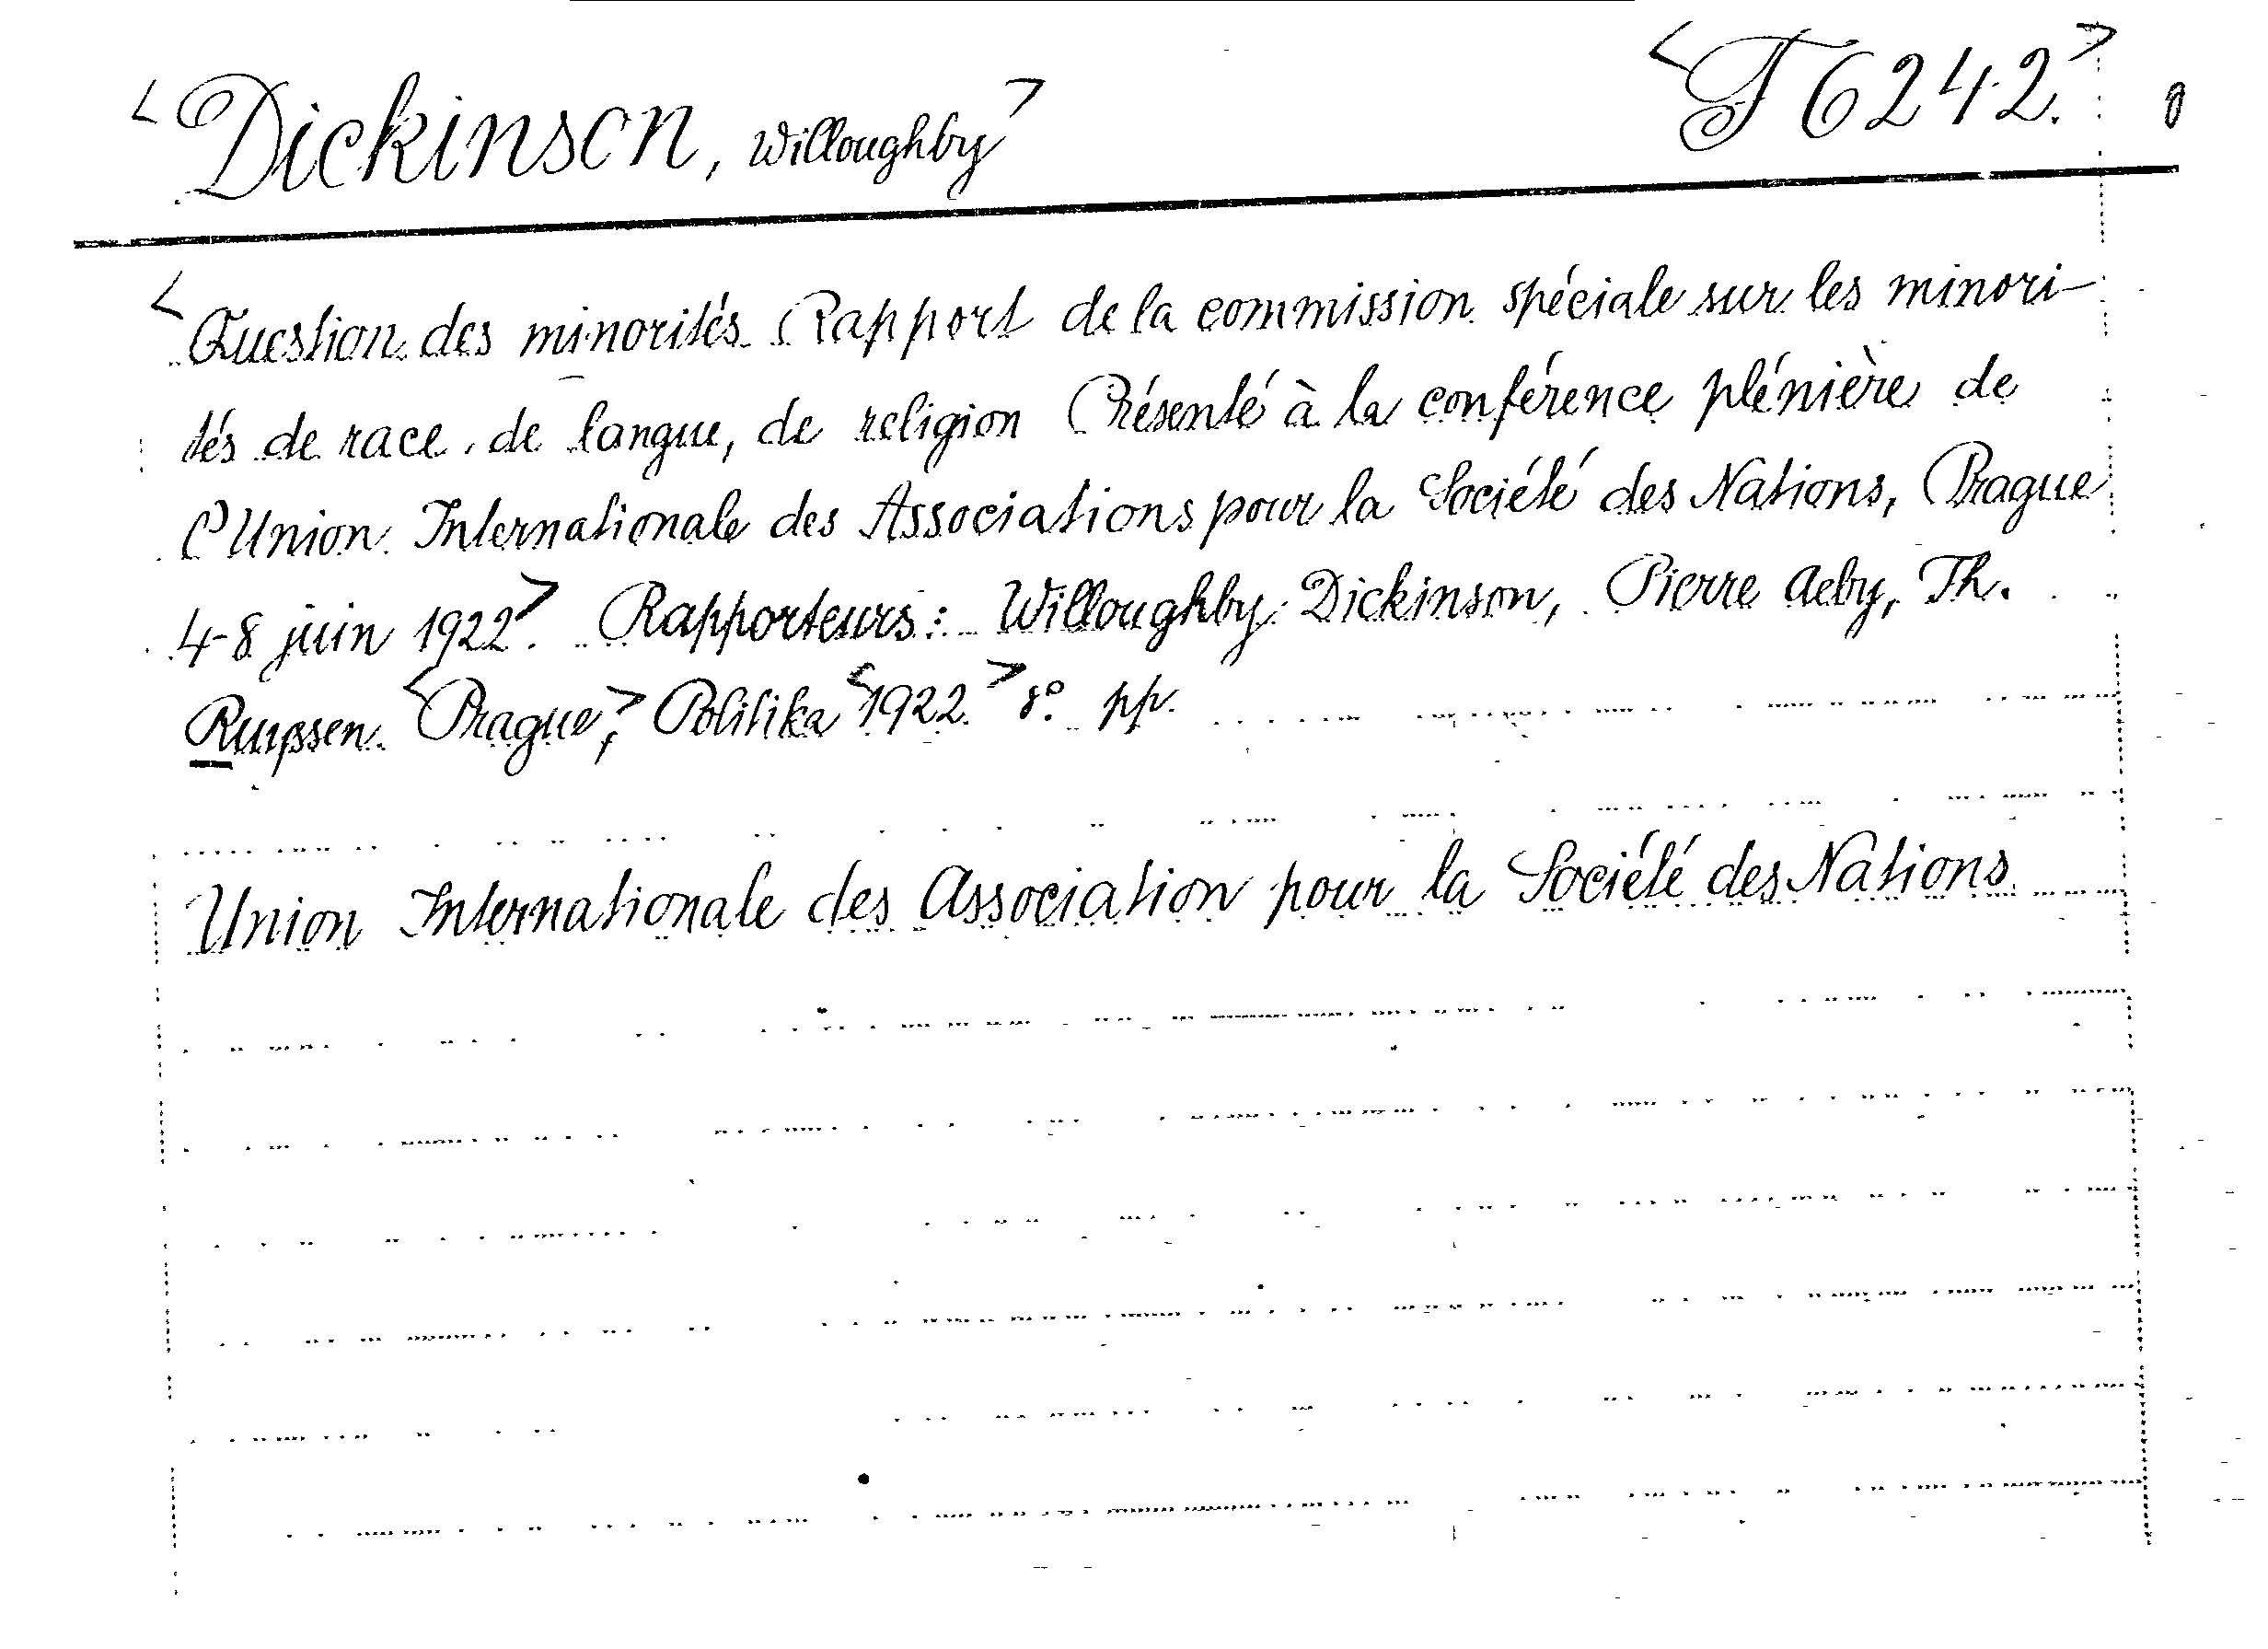 <Dickinson, Willoughby> <F 6242.>
<Question des minorités Rapport de la commission spéciale sur les minori-
tés de race, de langue, de religion Présenté à la conférence plénière de
l'Union Internationale des Associations pour la Société des Nations, Prague
4-8 juin 1922>. Rapporteurs: Willoughby Dickinson, Pierre Aeby, Th.
Ruyssen. <Prague,> Politika <1922.> 8°. pp.
Union Internationale des Association pour la Société des Nations